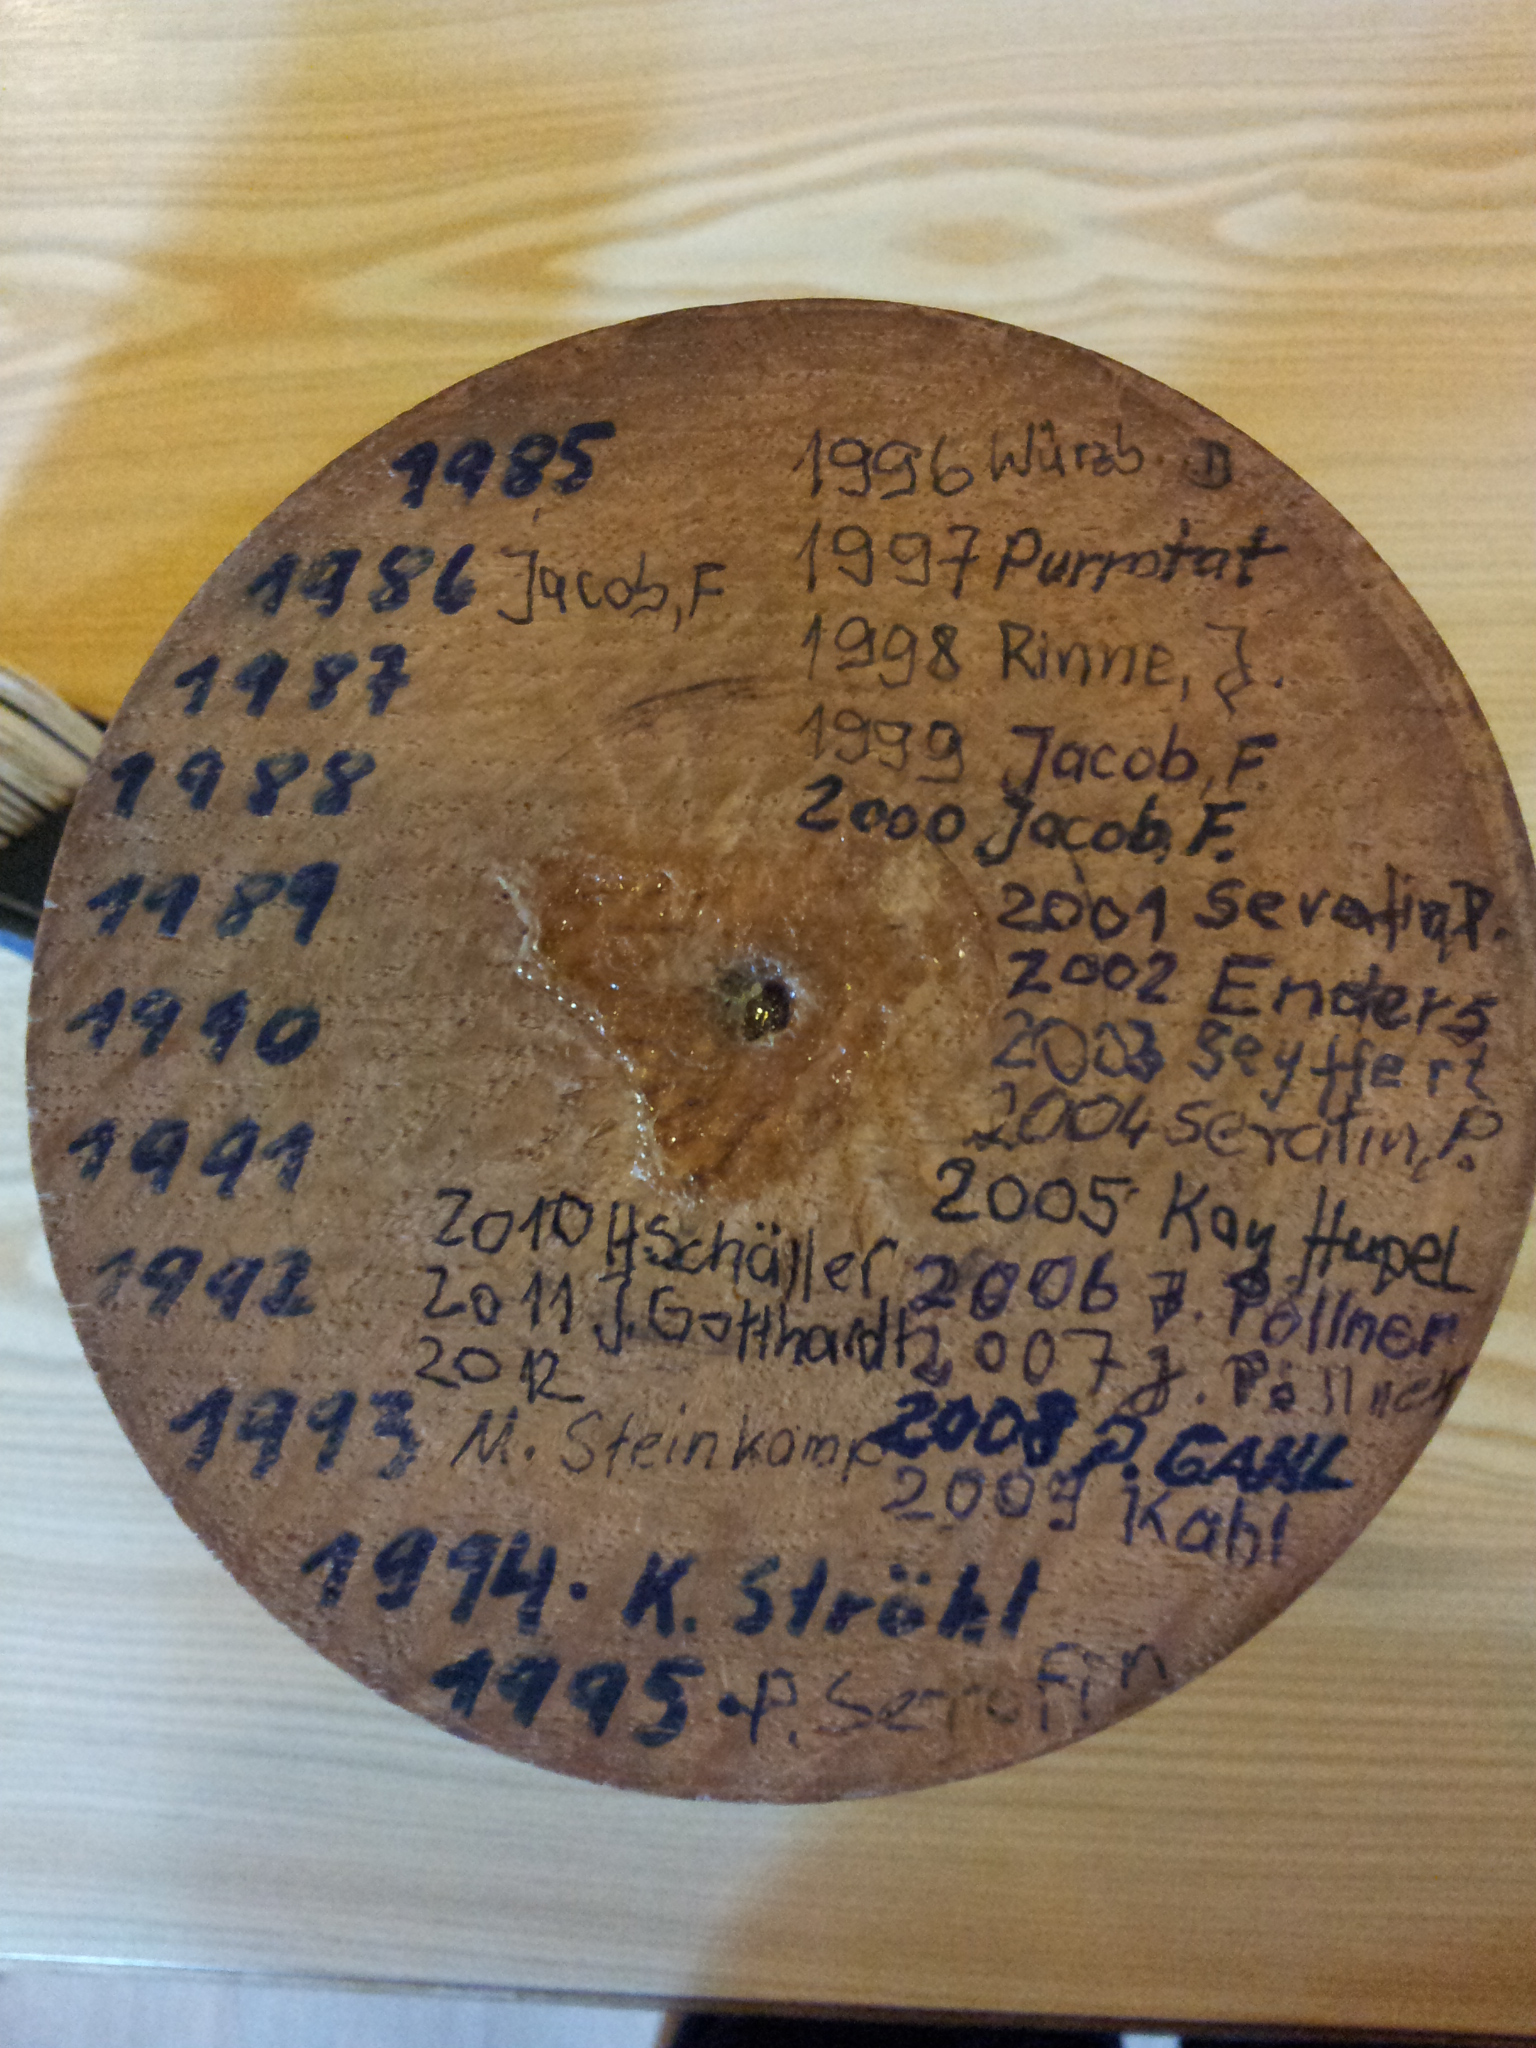 1985
1986 Jacob, F
1987
1988
1989
1990
1991
1992
1993
1994. K. Ströhl
1995. P. Serafin
1996 Würzb. B
1997 Purrotat
1998 Rinne, J.
1999 Jacob, F.
2000 Jacob, F.
2001 Serafin P.
2002 Enders
2003 Seyffert
2004 Serafin, P.
2005 Kay Hupel
2006 J. Pöllner
2007 J. Pöllner
2008 P. GAHL
2009 Kahl
2010 H. Schäller
2011 J. Gotthardt
2012
M. Steinkamp